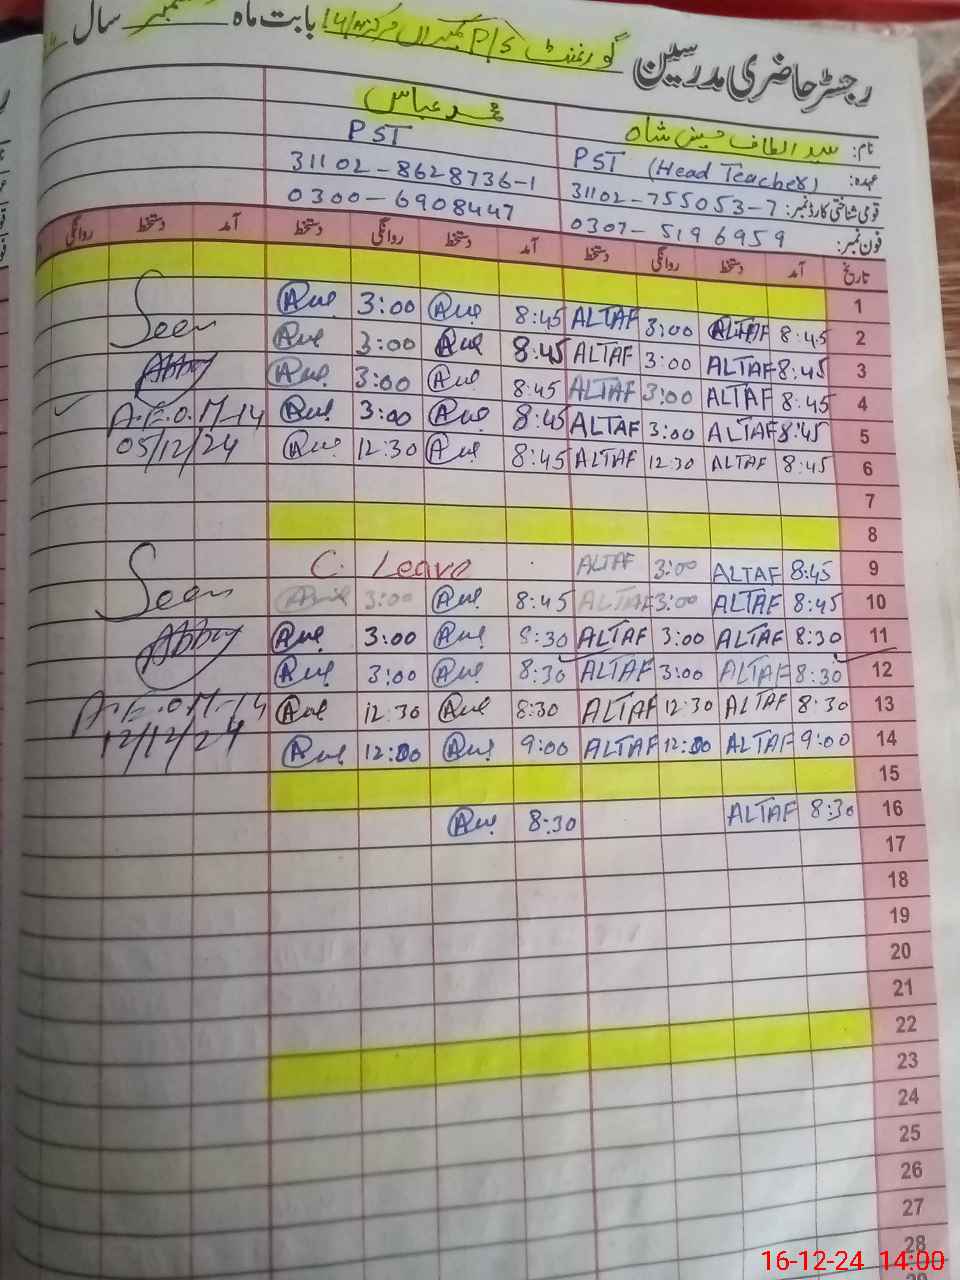 رجسٹر حاضری مدرسین گورنمنٹ P/S بابت ماہ دسمبر سال
نام: سید الطاف حسین شاہ محمد عباس
عہدہ: PST (Head Teacher) PST
قومی شناختی کارڈ نمبر: 31102-755053-7 31102-8628736-1
فون نمبر: 0307-5196959 0300-6908447
تاریخ آمد دستخط روانگی دستخط آمد دستخط روانگی دستخط آمد دستخط روانگی
1
2 8:45 ALTAF 3:00 ALTAF 8:45 3:00 Seen
3 8:45 ALTAF 3:00 ALTAF 8:45 3:00
4 8:45 ALTAF 3:00 ALTAF 8:45 3:00
5 8:45 ALTAF 3:00 ALTAF 8:45 3:00 A.E.O.M-14
6 8:45 ALTAF 12:30 ALTAF 8:45 12:30 05/12/24
7
8
9 8:45 ALTAF 3:00 ALTAF C. Leave
10 8:45 ALTAF 3:00 ALTAF 8:45 3:00 Seen
11 8:30 ALTAF 3:00 ALTAF 8:30 3:00
12 8:30 ALTAF 3:00 ALTAF 8:30 3:00
13 8:30 ALTAF 12:30 ALTAF 8:30 12:30 A.E.O.M-14
14 9:00 ALTAF 12:00 ALTAF 9:00 12:00 12/12/24
15
16 8:30 ALTAF 8:30
17
18
19
20
21
22
23
24
25
26
27
28
16-12-24 14:00